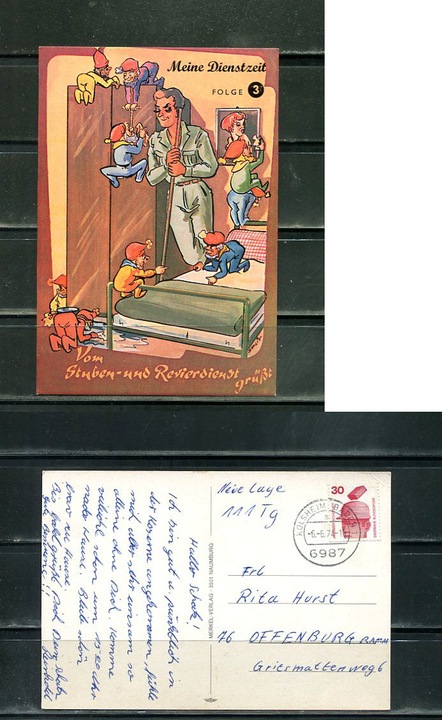 Meine Dienstzeit
FOLGE 3
Vom
Stuben- und Revierdienst
grüßt
Hallo
Ich bin gut u. pünktlich in
der Kaserne angekommen, fühle
mich aber sehr einsam so
alleine ohne Dich. Komme
vielleicht schon um 15 Uhr
nach Hause. Bleib schön
brav zu Hause
MERKEL-VERLAG · 3501 NAUMBURG
Neue Lage
111 Tg
30
KÜLSHEIM
-6.-6.74
6987
Frl
Rita Horst
76 OFFENBURG
Griesmattenweg 6